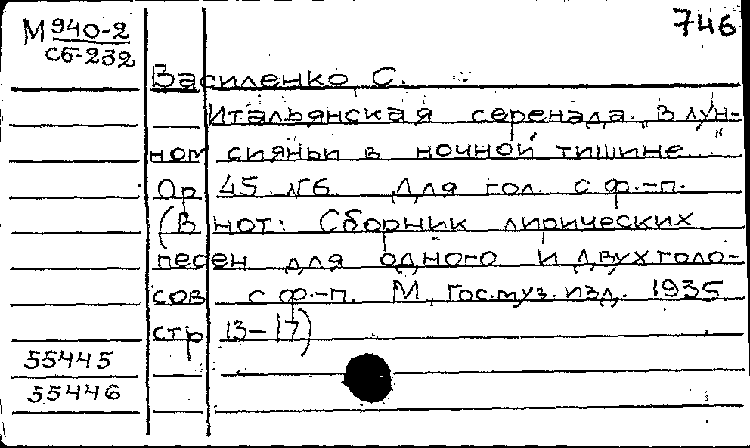 746
М 940-2
сб-232
Василенко, С.
Итальянская серенада. „В лун-
ном сияньи в ночной тишине..."
Op. 45 №6. Для гол. с ф.-п.
(В нот: Сборник лирических
песен для одного и двух голо-
сов с ф.-п. М., Гос. муз. изд. 1935
стр. 13-17)
55445
55446